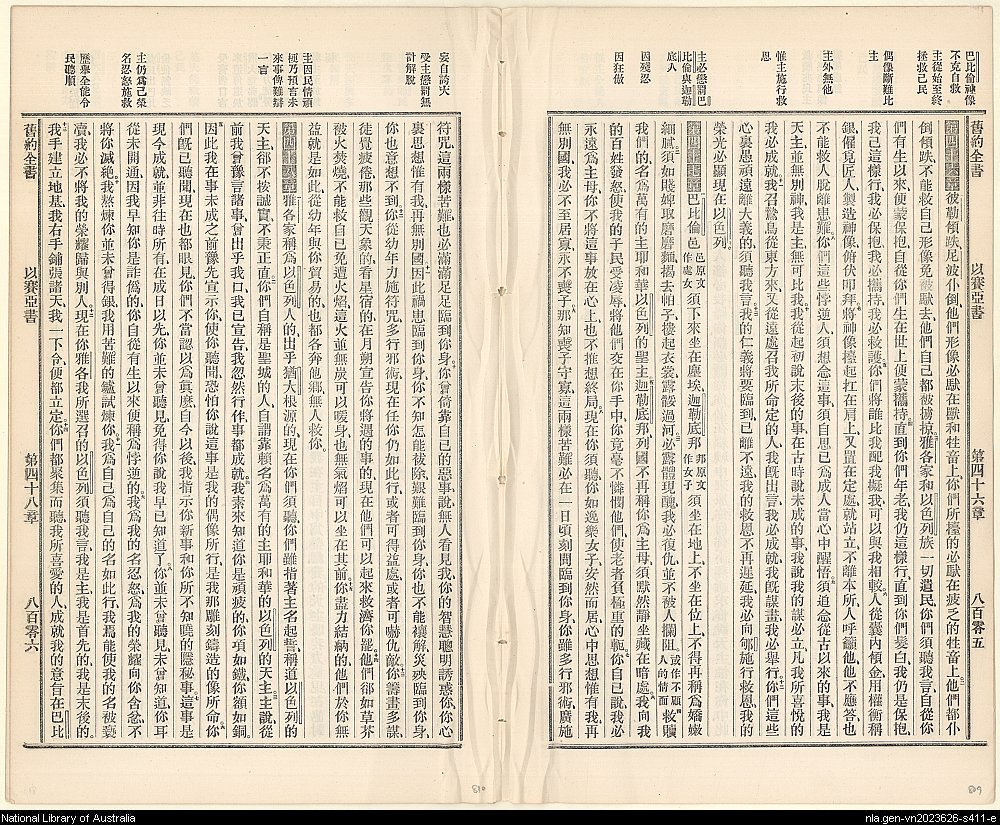 巴比倫神像
不克自救
主從始至終
拯救己民
偶像斷難比
主
主外無他
惟主施行救
恩
主必懲罰巴
比倫與迦勒
底人
因殘忍
因狂傲
舊約全書 以賽亞書 第四十六章 八百零五
第四十六章 彼勒傾跌、尼波仆倒、他們形像必馱在獸和牲畜上、你們所擡的必馱在疲乏的牲畜上、他們都仆
倒傾跌、不能救自己形像免被馱去、他們自己都被擄掠、雅各家和以色列族一切遺民、你們須聽我言、自從你
們有生以來、便蒙保抱、自從你們生在世上、便蒙攜持、直到你們年老、我仍這樣行、直到你們髮白、我仍是保抱、
我已這樣行、我必保抱、我必攜持、我必救護、你們將誰比我配我擬我、可以與我相較、人從囊內傾金、用權衡稱
銀、僱覓匠人、製造神像、俯伏叩拜、將神像擡起、扛在肩上、又置在定處、就站立、不離本所、人呼籲他、他不應答、也
不能救人脫離患難、你們這些悖逆人、須想念這事、須自思已為成人、當心中醒悟、須追念從古以來的事、我是
天主、並無別神、我是主、無可比我、我從起初說末後的事、在古時說未成的事、我說、我的謀必立、凡我所喜悅的、
我必成就、我召鷙鳥從東方來、又從遠處召我所命定的人、我既出言、我必成就、我既謀畫、我必舉行、你們這些
心裏愚頑遠離大義的、須聽我言、我的仁義將要臨到、已離不遠、我的救恩不再遲延、我必向郇施行救恩、我的
榮光必顯現在以色列、
第四十七章 巴比倫邑、邑原文作處女須下來坐在塵埃、迦勒底邦、邦原文作女子須坐在地上、不坐在位上、不得再稱為嬌嫩
細膩、須如賤婢取磨磨麵、揭去帕子、摟起衣裳、露骽過河、必露體現醜、我必復仇、並不被人攔阻、或作不顧人的情面救贖
我們的、名為萬有的主耶和華、以色列的聖主、迦勒底邦、列國不再稱你為主母、須默然靜坐、藏在暗處、我向我
的百姓發怒、使我的子民受淩辱、將他們交在你手中、你竟毫不憐憫他們、使老者負極重的軛、你自己說、我必
永遠為主母、你不將這事放在心上、也不推想終局、現在你須聽、你如逸樂女子安然而居、心中思想惟有我、再
無別國、我必不至居寡、永不喪子、那知喪子守寡這兩樣苦難、必在一日頃刻間臨到你身、你雖多行邪術、廣施
妄自誇大
受主懲罰無
計解脫
主因民情頑
梗乃預言未
來事俾難辯
一言
主仍為己榮
名忍怒施救
歷舉全能令
民聽順
符咒、這兩樣苦難、也必滿滿足足臨到你身、你曾倚靠自己的惡事、說、無人看見我、你的智慧聰明誘惑你、你心
裏思想惟有我、再無別國、因此禍患臨到你身、你不知怎能被除、艱難臨到你身、你也不能禳解、災殃臨到你身、
你也意想不到、你從幼年力施符咒、多行邪術、現在任你仍如此行、或者可得益處、或者可嚇仇敵、你籌畫多謀、
徒覺疲倦、那些觀天象的、看星宿的、在月朔宣告你將遇的事的、現在他們可以起來救濟你罷、他們卻如草芥
被火焚燒、不能救自己免遭火焰、這火並無炭可以暖身、也無氣焰可以坐在其前、你盡力結納的、他們於你無
益就是如此、從幼年與你貿易的、也都各奔他鄉、無人救你、
第四十八章 雅各家稱為以色列人的、出乎猶大根源的、現在你們須聽、你們雖指著主名起誓、稱道以色列的
天主、卻不按誠實、不秉正直、你們自稱是聖城的人、自謂靠賴名為萬有的主耶和華的以色列的天主、主說、從
前我曾豫言諸事、曾出乎我口、我已宣告、我忽然行作、事都成就、我素來知道你是頑疲的、你項如鐵、你額如銅、
因此我在事未成之前、豫先宣示你、使你聽聞、恐怕你說、這事是我的偶像所行、是我那雕刻鑄造的像所命、你
們既已聽聞、現在也都眼見、你們不當認以為真麼、自今以後、我指示你新事、和你所不知曉的隱秘事、這事是
現今成就、並非往時所有、在成日以先、你並未曾聽見、免得你說、我早已知道了、你並未曾聽見、未曾知道、你耳
從未開通、因我早知你是詐偽的、你自從有生以來便稱為悖逆的、我為我的名忍怒、為我的榮耀向你含忿、不
將你滅絕、我熬煉你、並未曾得銀、我用苦難的爐試煉你、我為自己為自己的名如此行、我焉能使我的名被褻
瀆、我必不將我的榮耀歸與別人、現在你雅各、我所選召的以色列、須聽我言、我是主、我是首先的、我是末後的、
我手建立地基、我右手鋪張諸天、我一下令、便都立定、你們都聚集而聽、我所喜愛的人、成就我的意旨在巴比
舊約全書 以賽亞書 第四十八章 八百零六
810
809
National Library of Australia
nla.gen-vn2023626-s411-e